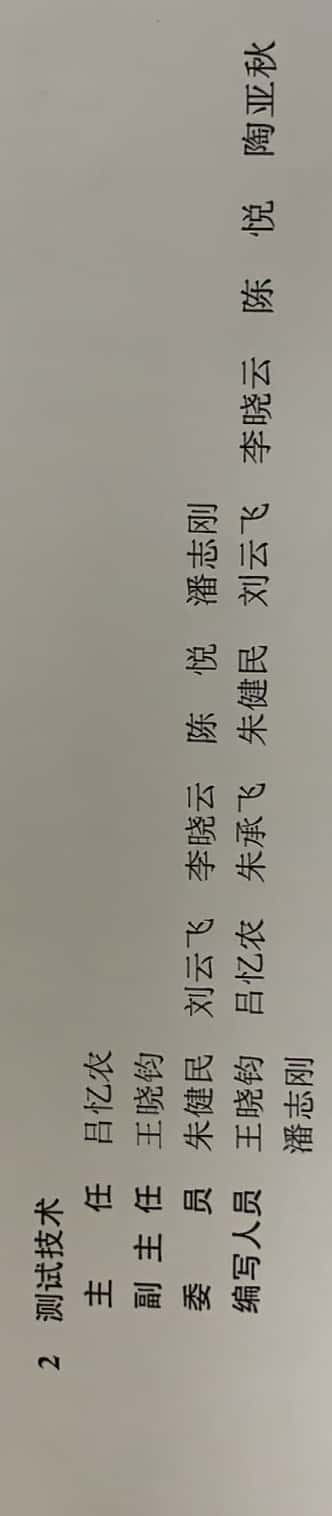 2 测试技术
主 任 吕忆农
副主任 王晓钧
委 员 朱健民 刘云飞 李晓云 陈 悦 潘志刚
编写人员 王晓钧 吕忆农 朱承飞 朱健民 刘云飞 李晓云 陈 悦 陶亚秋
潘志刚